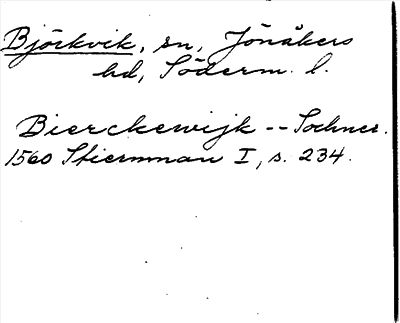 Björkvik, sn, Jönåkers
hd, Söderm. l.
Bierckewijk -- Sochner.
1560 Stiernman I, s. 234.